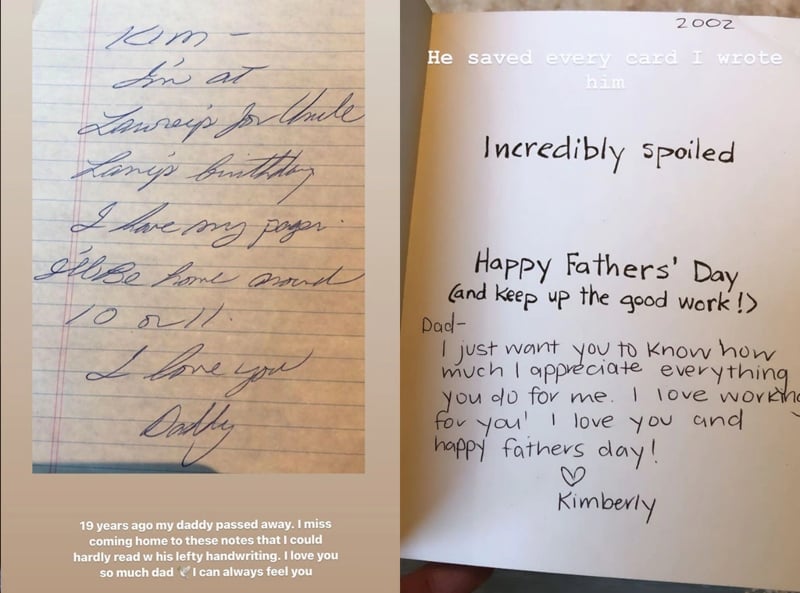 Kim -
I'm at
for Uncle
birthday
I have my pager.
I'll Be home around
10 or 11.
I love you
Daddy
19 years ago my daddy passed away. I miss
coming home to these notes that I could
hardly read w his lefty handwriting. I love you
so much dad 🕊️ I can always feel you
2002
He saved every card I wrote
him
Incredibly spoiled
Happy Fathers' Day
(and keep up the good work!)
Dad-
I just want you to know how
much I appreciate everything
you do for me. I love working
for you! I love you and
happy fathers day!
♡
Kimberly